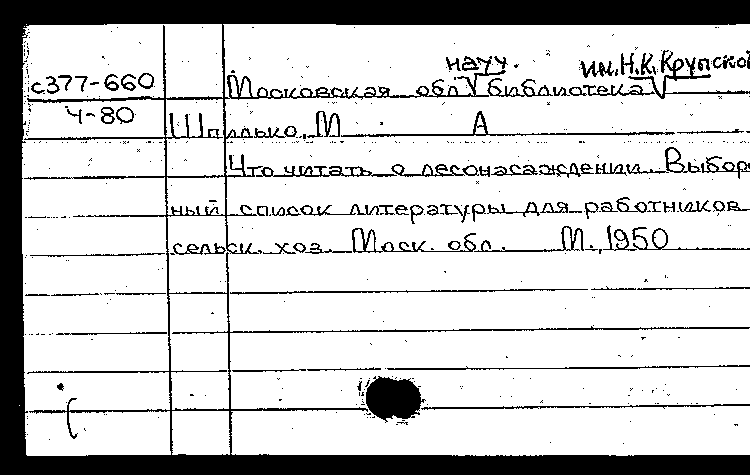 науч. им. Н.К. Крупской
с377-660 Московская обл V библиотека V
Ч-80
Шпилько, М А
Что читать о лесонасаждении. Выбороч
ный список литературы для работников
сельск. хоз. Моск. обл. М., 1950